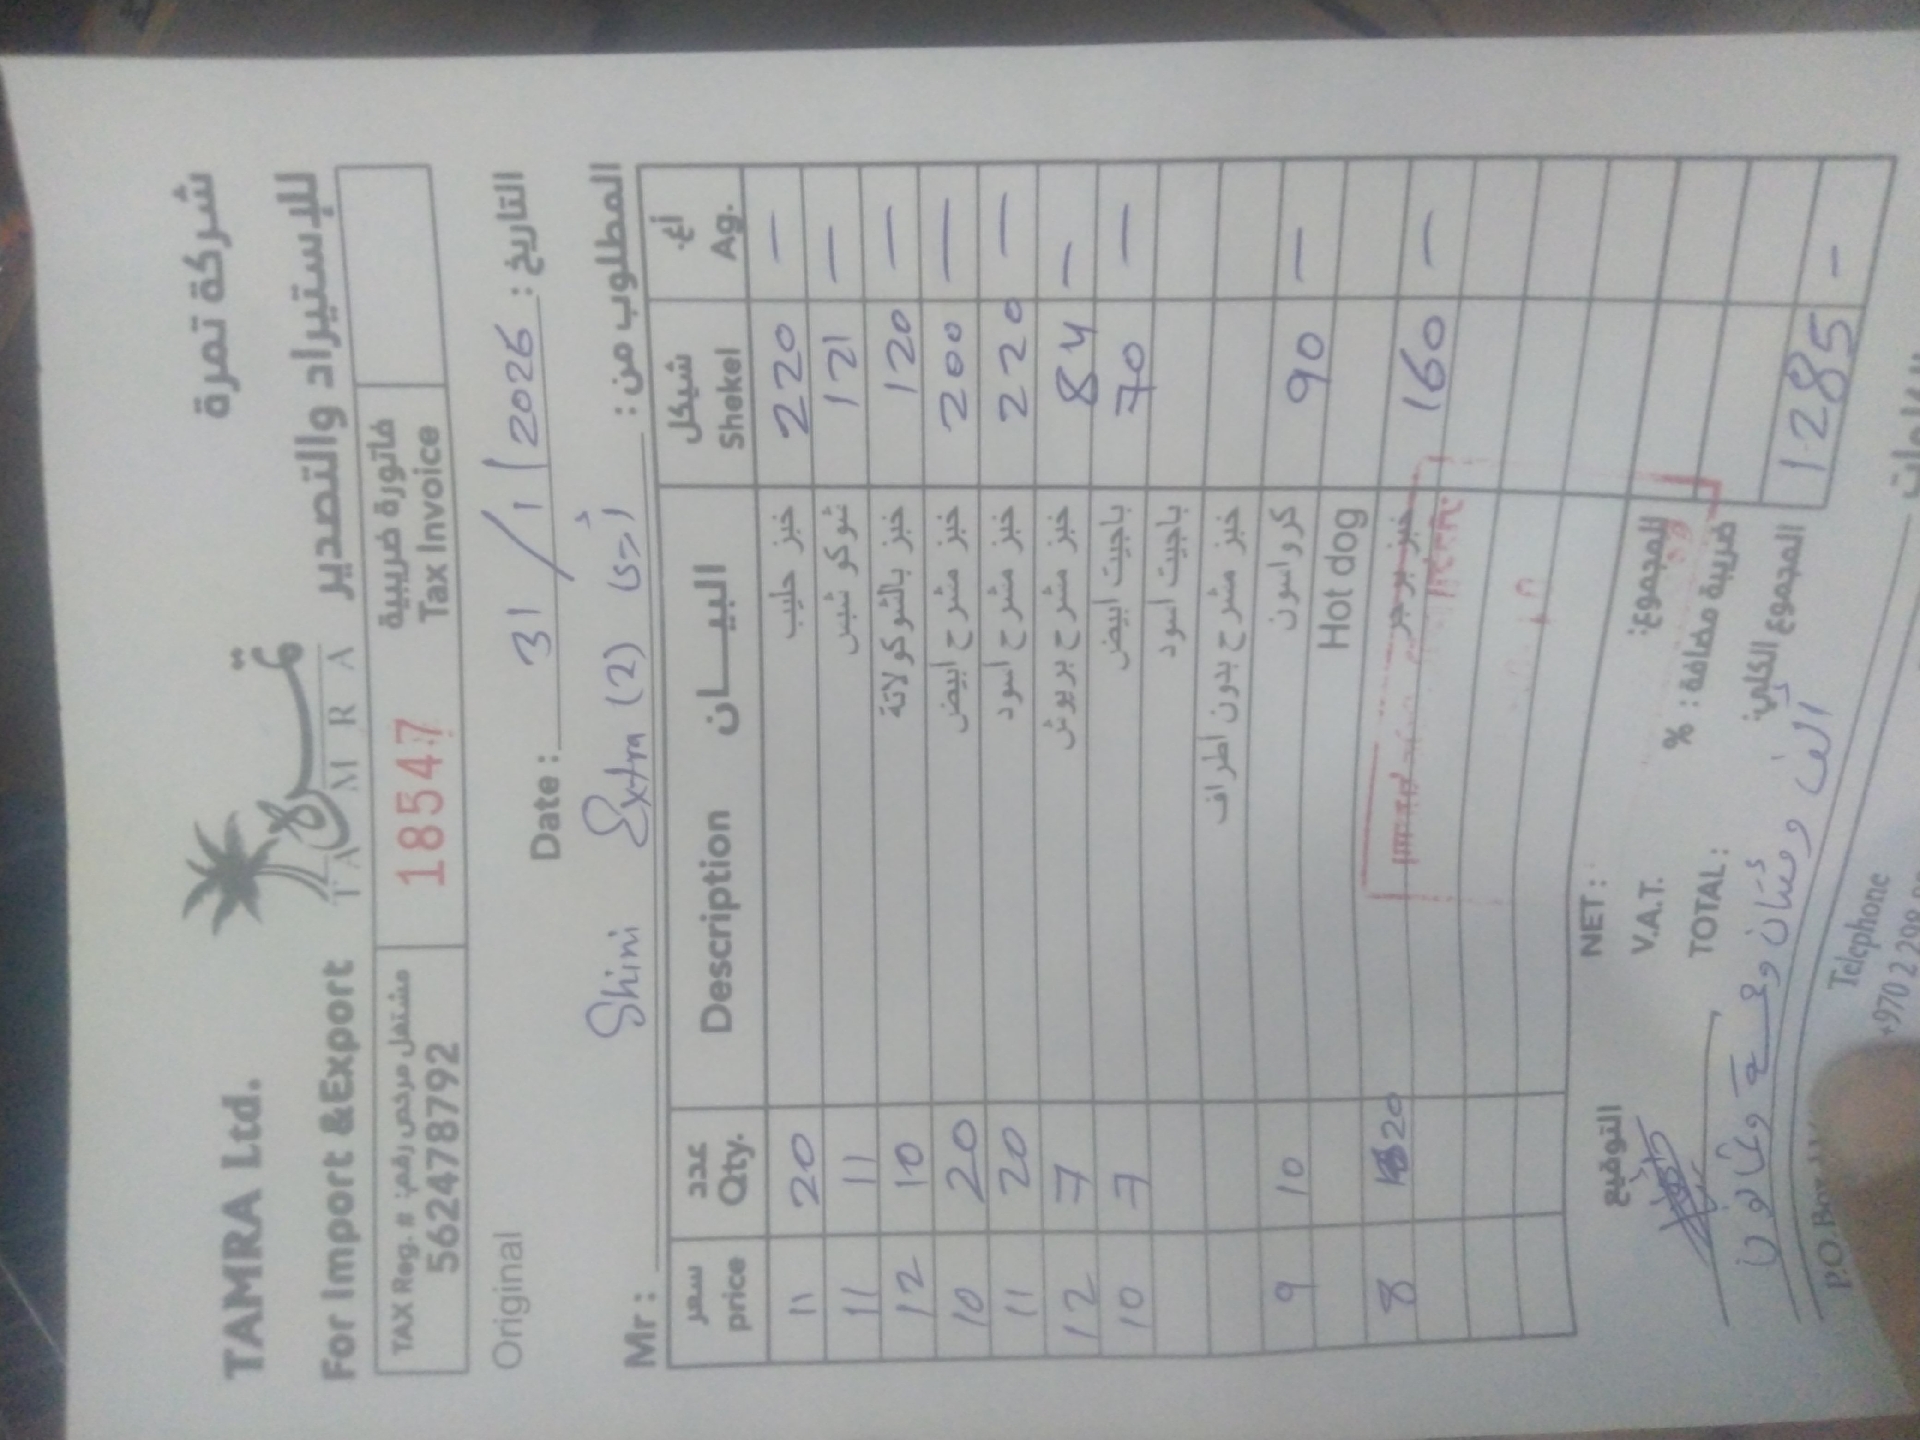 TAMRA Ltd. شركة تمرة
For Import &Export للإستيراد والتصدير
تمرة
TAMRA
TAX Reg. # مشتغل مرخص رقم:
562478792
18547
فاتورة ضريبية
Tax Invoice
Original
Date : 31/1/2026 التاريخ :
Mr : Shini Extra (2) المطلوب من :
سعر price عدد Qty. Description البيــان شيكل Shekel أغ. Ag.
11 20 خبز حليب 220 —
11 11 شوكو شبس 121 —
12 10 خبز بالشوكولاتة 120 —
10 20 خبز مشرح ابيض 200 —
11 20 خبز مشرح اسود 220 —
12 7 خبز مشرح بريوش 84 —
10 7 باجيت ابيض 70 —
باجيت اسود
خبز مشرح بدون اطراف
9 10 كرواسون 90 —
Hot dog
8 20 خبز بوجر 160 —
التوقيع NET : المجموع:
V.A.T. % ضريبة مضافة :
TOTAL : المجموع الكلي: 1285 —
الف ومئتان وخمسة وثمانون
Telephone
P.O. Box
+970 2 298